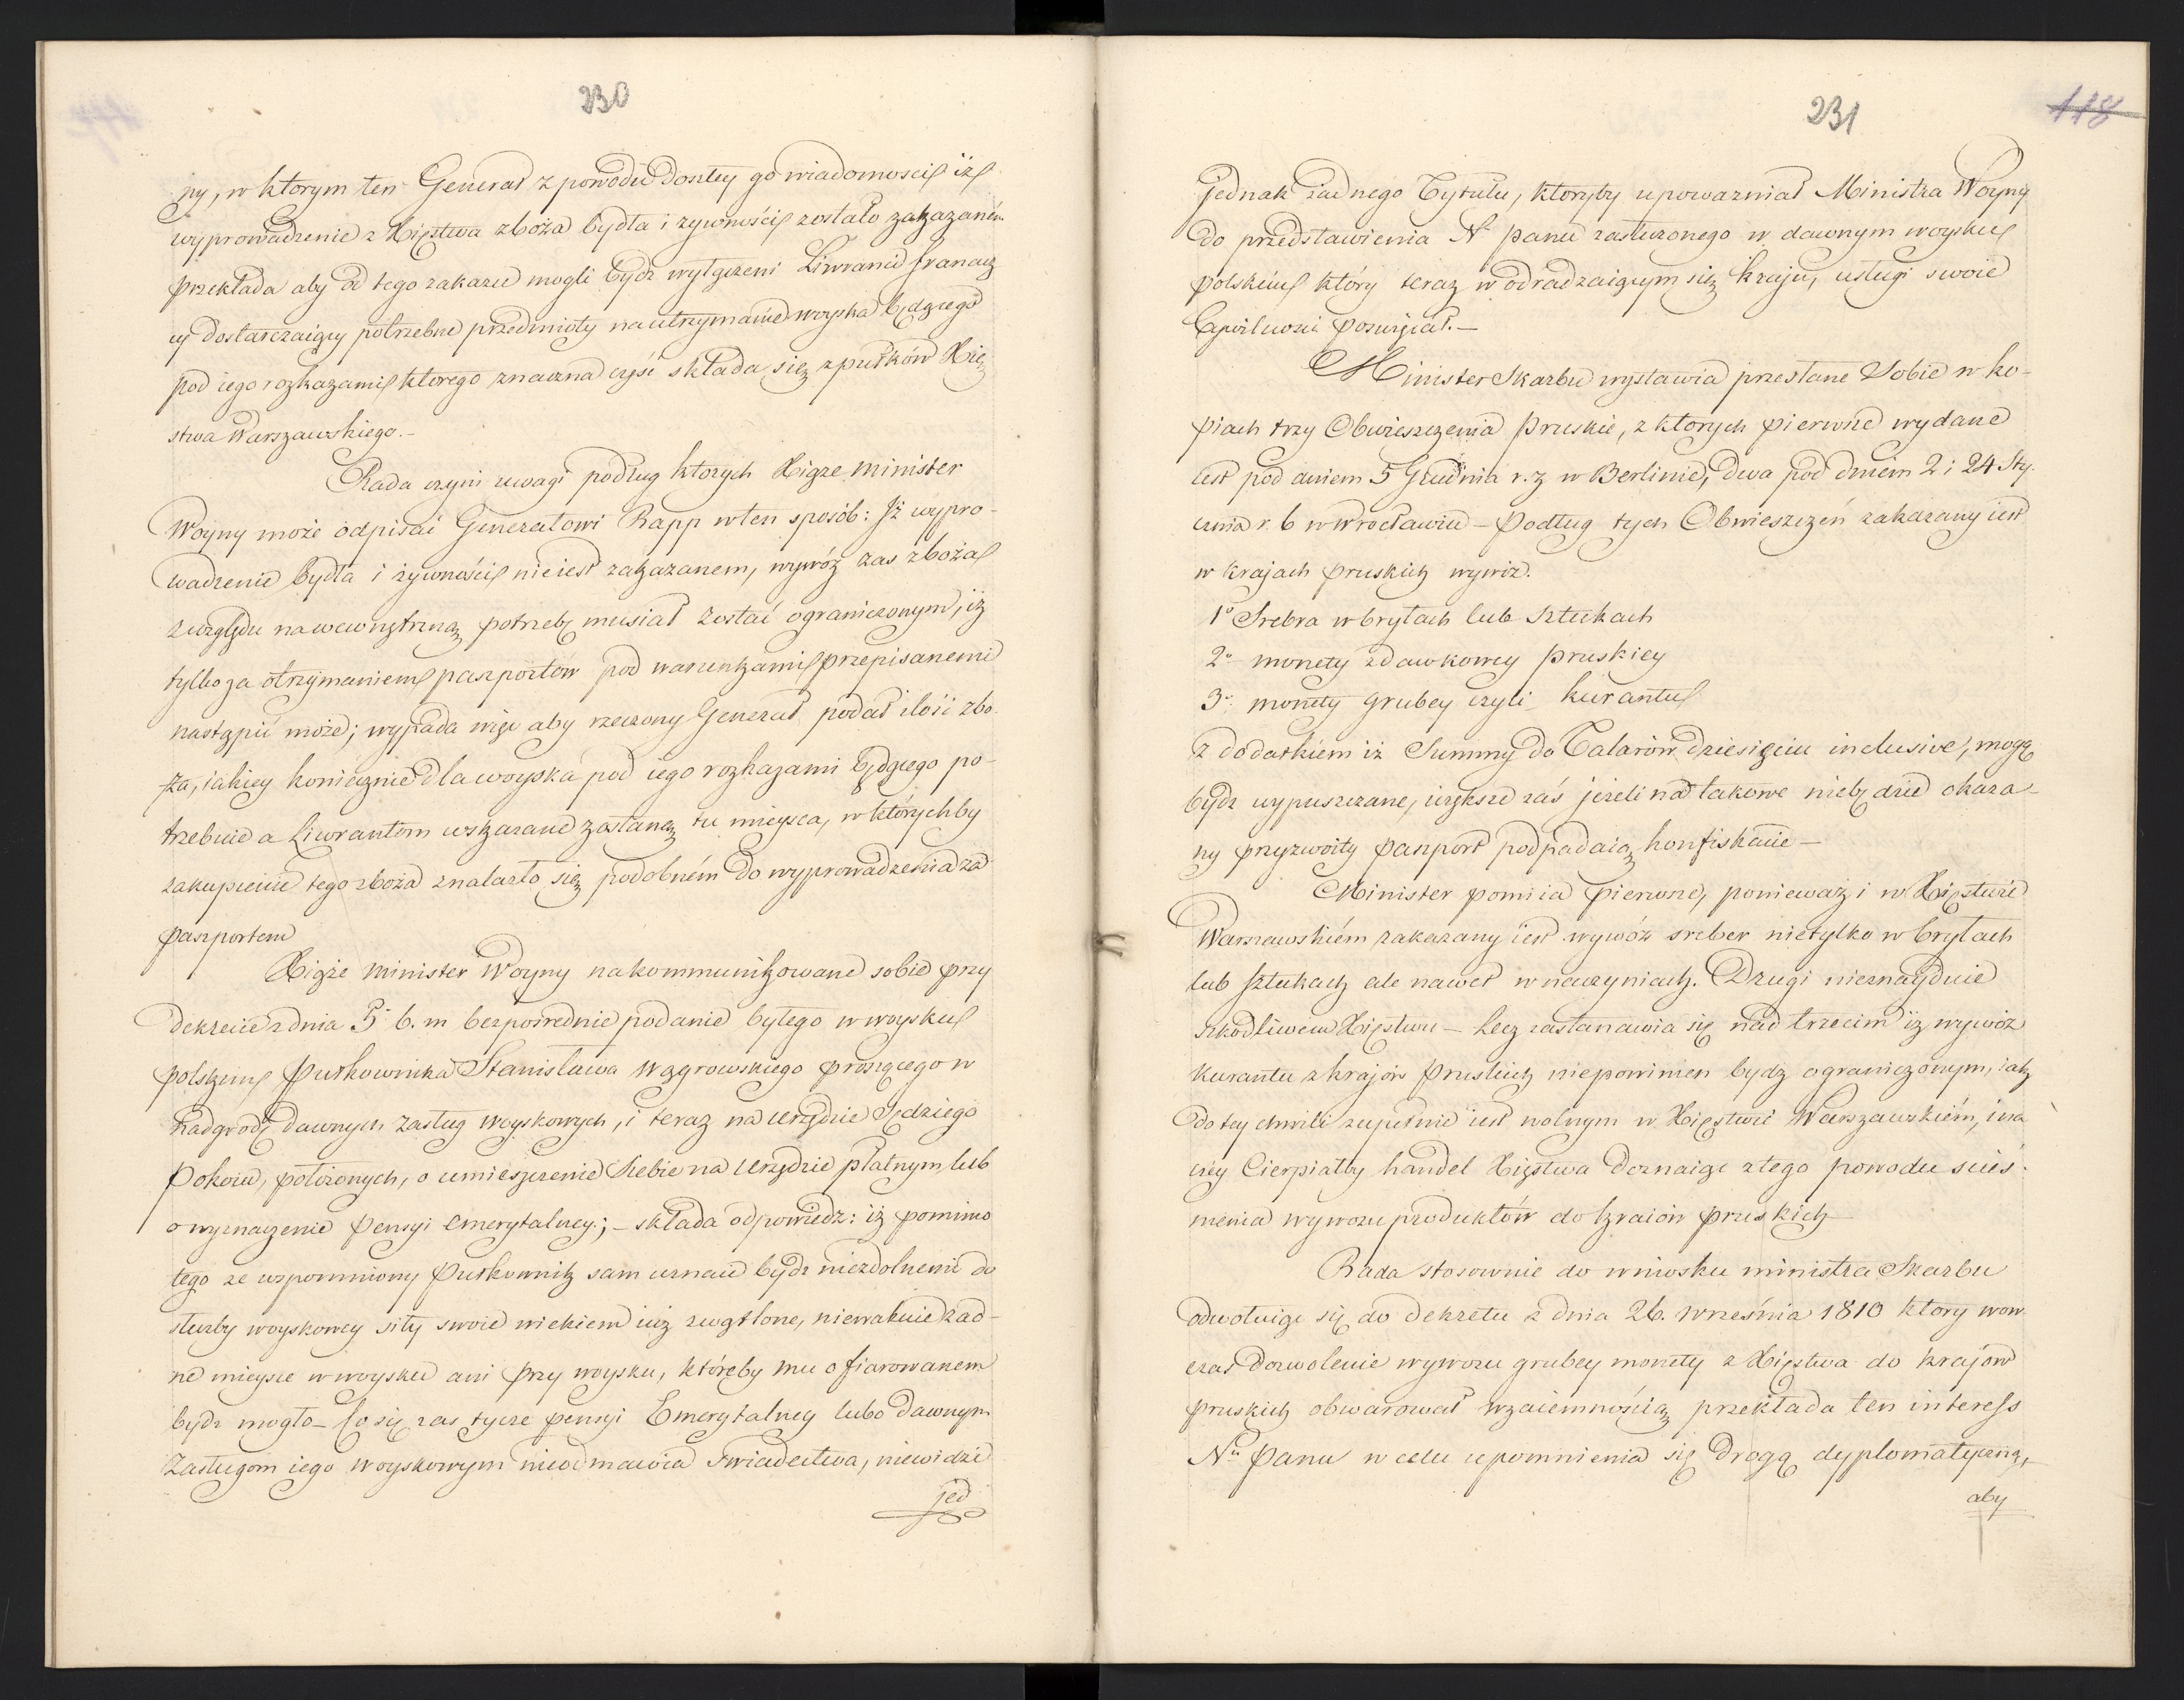 230
ny, w ktorym ten Generał z powodu doszłey go wiadomości iż
wyprowadzenie z Xięstwa zboża bydła i żywności zostało zakazaném
przekłada aby od tego zakazu mogli bydz wyłączeni Liwranci francuz
cy dostarczaiący potrzebne przedmioty na utrzymanie woyska będącego
pod iego rozkazami ktorego znaczna część składa się z pułków Xię
stwa Warszawskiego.–
Rada czyni uwagi podług ktorych Xiąże minister
Woyny może odpisać Generałowi Rapp w ten sposób: Iż wypro-
wadzenie bydła i żywności nieiest zakazanem, wywóz zas zboża
względu na wewnętrzną potrzebę musiał zostać ograniczonym, iż
tylko za otrzymaniem paszportów pod warunkami przepisanemi
nastąpić może; wypada więc aby rzeczony Generał podał ilość zbo-
ża, iakiey koniecznie dla woyska pod iego rozkazami będącego po-
trzebuie a Liwrantom wskazane zostaną te mieysca, w którychby
zakupienie tego zboża znalazło się podobném do wyprowadzenia za
paszportem
Xiąże minister Woyny na kommunikowane sobie przy
dekrecie z dnia 5 b. m bezpośrednie podanie byłego w woysku
polskim Pułkownika Stanisława Wągrowskiego proszącego w
nadgrodę dawnych zasług woyskowych, i teraz na urzędzie Sędziego
Pokoiu, położonych, o umieszczenie Siebie na Urzędzie płatnym lub
o wyznaczenie Pensyi emerytalney; – składa odpowiedz: iż pomimo
tego ze wspomniony Pułkownik sam uznaie bydz niezdolnemi do
służby woyskowey siły swoie wiekiem iuż zwątlone, niewakuie żad-
ne mieysce w woysku ani przy woysku, któreby mu ofiarowanem
bydz mogło – Co się zas tycze pensyi Emerytalney lubo dawnym
Zasługom iego woyskowym nieodmawia Swiadectwa, niewidzi
jed
231
118
jednak żadnego Tytułu, ktoryby upoważniał Ministra Woyny
do przedstawienia N. Panu zasłużonego w dawnym woysku
polskim który teraz w odradzaiącym się kraju, usługi swoie
Cywilności poswięcał.–
Minister Skarbu wystawia przesłane Sobie w ko-
piach trzy Obwieszczenia Pruskie, z ktorych pierwsze wydane
iest pod dniem 5 Grudnia r. z w Berlinie, dwa pod dniem 2 i 24 Sty-
cznia r. b w Wrocławiu – Podług tych Obwieszczeń zakazany iest
w krajach Pruskich wywóz.
1° Srebra w brytach lub Sztukach
2° monety zdawkowey pruskiey
3° monety grubey czyli kurantu
z dodatkiem iz Summy do Talarów dziesięciu inclusive, mogą
bydz wypuszczane, większe zaś jeżeli na takowe niebędzie okaza-
ny przyzwoity paszport podpadaią konfiskacie –
Minister pomiia pierwsze, ponieważ i w Xięstwie
Warszawskiém zakazany iest wywóz sreber nietylko w brytach
lub sztukach ale nawet w naczyniach. Drugi nieznayduie
szkodliwem Xięstwu – Lecz zastanawia się nad trzecim iż wywóz
kurantu z krajów Pruskich niepowinien bydz ograniczonym, iak
do tey chwili zupełnie iest wolnym w Xięstwie Warszawskiém, ina
czey Cierpiałby handel Xięstwa doznaiąc z tego powodu scieś-
nienia wywozu produktów do kraiów pruskich
Rada stosownie do wniosku ministra Skarbu
odwołuiąc się do dekretu z dnia 26. września 1810 ktory wow-
czas dozwolenie wywozu grubey monety z Xięstwa do krajow
pruskich obwarował wzaiemnością przekłada ten interess
N. Panu w celu upomnienia się drogą dyplomatyczną,
aby